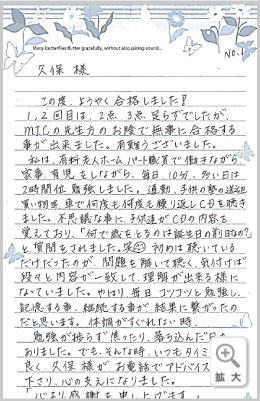 Many butterflies flutter gracefully, without also raising sound...
NO.1
久保 様
この度、ようやく合格しました!
1、2回目は、2点、3点足らずでしたが
MICの先生方のお陰で無事に合格する
事が出来ました。有難うございました。
私は、有料老人ホームパート職員で働きながら、
家事、育児をしながら、毎日、10分、多い日は
2時間位勉強しました。通勤、子供の塾の送迎
買い物等、車で何度も何度も繰り返しCDを聴き
ました。不思議な事に、子供達がCDの内容を
覚えており、「何で歳をとるのは誕生日の前日なの?」
と、質問をされました。笑 初めは聴いている
だけだったのが、問題を解いて聴く、気付けば
段々と内容が一致して、理解が出来る様に
なっていました。やはり毎日コツコツと勉強し、
記憶する事、継続する事が結果に繋がったの
だと思います。体調がすぐれない時、
勉強が捗らず焦ったり、落ち込んだ
ありました。でも、そんな時、いつもタイミ
良く、久保様がお電話でアドバイス
下さり、心の支えになりました。
心より感謝を申し上げます
拡大